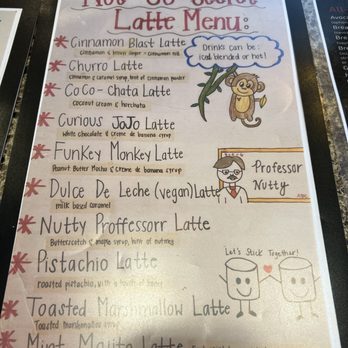 Not So Secret
Latte Menu:
Cinnamon Blast Latte
Cinnamon & brown sugar
Drinks can be:
iced, blended or hot!
Churro Latte
cinnamon & caramel syrup, hint of cinnamon powder
CoCo-Chata Latte
coconut cream & horchata
Curious JoJo Latte
White chocolate & creme de banana syrup
Funkey Monkey Latte
Peanut Butter Mocha & creme de banana syrup
Professor
Nutty
Dulce De Leche (vegan) Latte
milk based caramel
Nutty Proffesorr Latte
Butterscotch & maple syrup, hint of nutmeg
Let's Stick Together!
Pistachio Latte
roasted pistachio, with a touch of
Toasted Marshmallow Latte
Toasted marshmallow syrup
Mint Mojito Latte
All
Avoca